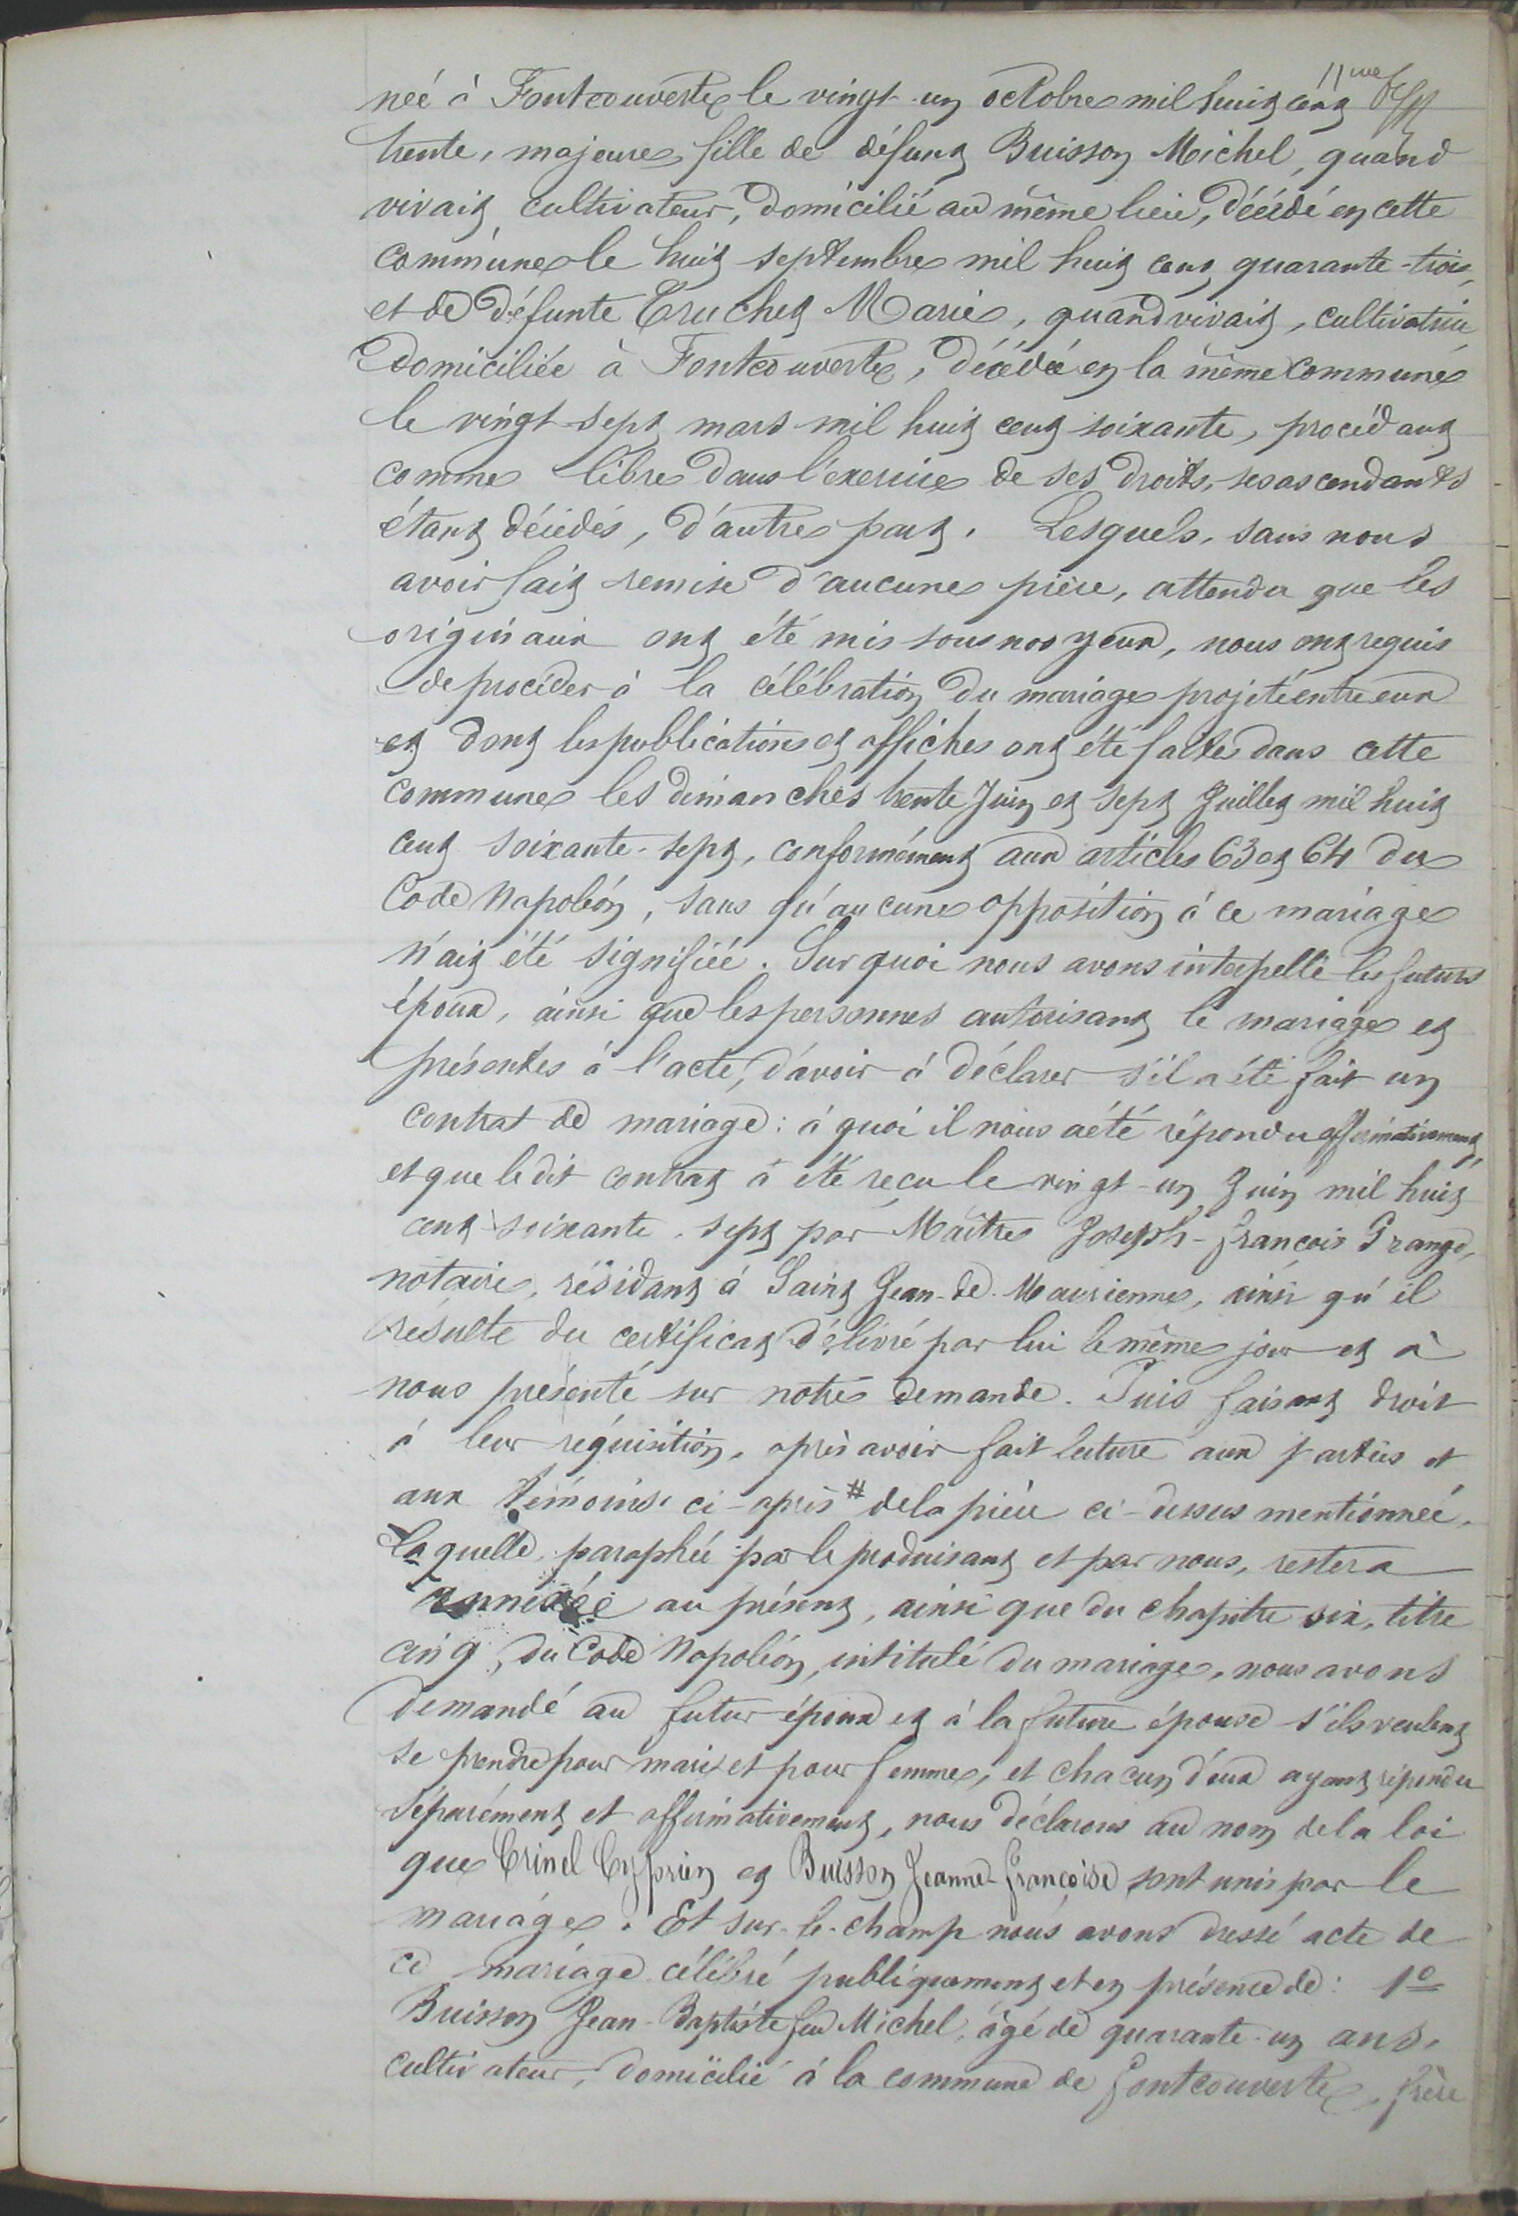 11me
née à Fontcouverte le vingt-un octobre mil huit cent
trente, majeure, fille de défunt Buisson Michel, quand
vivait cultivateur, domicilié au même lieu, décédé en cette
commune le huit septembre mil huit cent quarante-trois,
et de défunte Truchet Marie, quand vivait, cultivatrice
domiciliée à Fontcouverte, décédée en la même commune
le vingt-sept mars mil huit cent soixante, procédant
comme libre dans l'exercice de ses droits, ses ascendants
étant décédés, d'autre part. Lesquels, sans nous
avoir fait remise d'aucune pièce, attendu que les
originaux ont été mis sous nos yeux, nous ont requis
de procéder à la célébration du mariage projeté entre eux
et dont les publications et affiches ont été faites dans cette
commune les dimanches trente Juin et sept Juillet mil huit
cent soixante-sept, conformément aux articles 63 et 64 du
Code Napoléon, sans qu'aucune opposition à ce mariage
n'ait été signifiée. Sur quoi nous avons interpellé les futurs
époux, ainsi que les personnes autorisant le mariage et
présentes à l'acte, d'avoir à déclarer s'il a été fait un
contrat de mariage : à quoi il nous a été répondu affirmativement,
et que le dit contrat a été reçu le vingt-un Juin mil huit
cent soixante-sept par Maître Joseph-François Grange,
notaire, résidant à Saint Jean-de-Maurienne, ainsi qu'il
résulte du certificat délivré par lui le même jour et à
nous présenté sur notre demande. Puis faisant droit
à leur réquisition, après avoir fait lecture aux parties et
aux témoins ci-après # de la pièce ci-dessus mentionnée,
laquelle, paraphée par le produisant et par nous, restera
annexée au présent, ainsi que du chapitre six, titre
cinq, du Code Napoléon, intitulé du mariage, nous avons
demandé au futur époux et à la future épouse s'ils veulent
se prendre pour mari et pour femme, et chacun d'eux ayant répondu
séparément et affirmativement, nous déclarons au nom de la loi
que Crinel Cyprien et Buisson Jeanne-Françoise sont unis par le
mariage. Et sur-le-champ nous avons dressé acte de
ce mariage célébré publiquement et en présence de : 1º
Buisson Jean-Baptiste feu Michel, âgé de quarante-un ans,
cultivateur, domicilié à la commune de Fontcouverte, frère